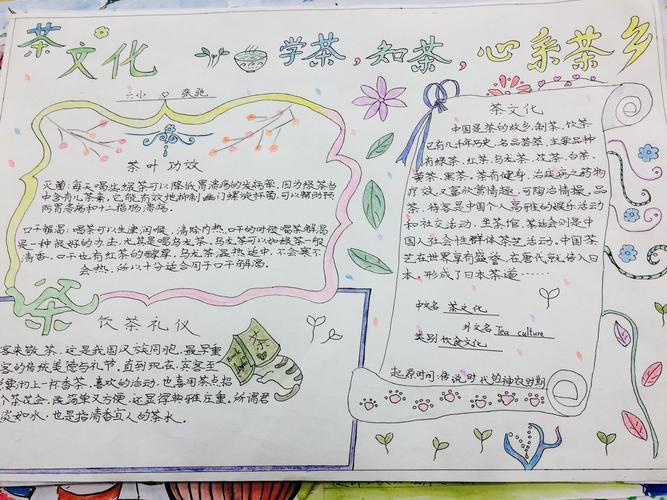 茶文化
学茶,知茶,心系茶乡
六小 张驰
茶叶 功效
灭菌:每天喝些绿茶可以降低胃溃疡的发病率,因为绿茶当
中含有儿茶素,它能有效地抑制幽门螺旋杆菌,可以帮助预
防胃溃疡和十二指肠溃疡。
口干解渴:喝茶可以生津润喉,清除内热,口干的时候喝茶解渴
是一种很好的办法,尤其是喝乌龙茶,乌龙茶可以如绿茶一般
清香,口干也有红茶的醇厚,乌龙茶温热适中,不会寒不
会热,所以十分适合用于口干解渴。
茶
饮茶礼仪
客来敬茶,这是我国汉族同胞,最早重
客的传统美德与礼节。直到现在,宾客至
沏上一杯香茶,喜欢的活动,也喜用茶点招
个茶花会,既简单又方便,还显得典雅庄重。所谓君
淡如水,也是指清香宜人的茶水
Book
茶
茶文化
中国是茶的故乡,制茶、饮茶
已有几千年历史,名品荟萃,主要品种
有绿茶、红茶、乌龙茶、饮茶、白茶、
黄茶、黑茶。茶有健身、治疾病之药物
疗效,又富欣赏情趣,可陶冶情操。品
茶、待客是中国个人高雅的娱乐活动
和社交活动,坐茶馆、茶话会则是中
国人社会性群体茶艺活动。中国茶
艺在世界享有盛誉,在唐代就传入日
本,形成了日本茶道……
中文名 茶文化
外文名 Tea culture
类别 饮食文化
起源时间:传说时代的神农时期